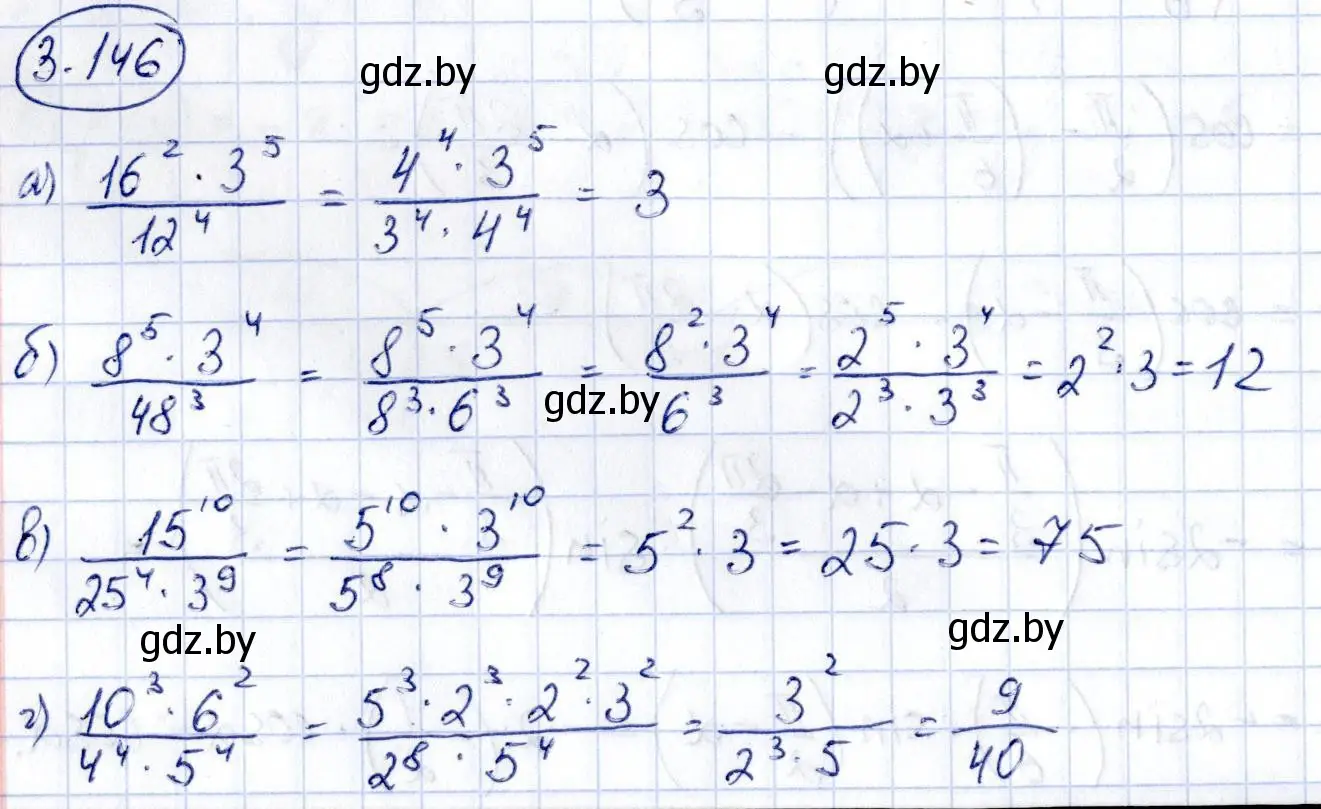 3.146
gdz.by gdz.by
а) 16² · 3⁵ / 12⁴ = 4⁴ · 3⁵ / 3⁴ · 4⁴ = 3
б) 8⁵ · 3⁴ / 48³ = 8⁵ · 3⁴ / 8³ · 6³ = 8² · 3⁴ / 6³ = 2⁵ · 3⁴ / 2³ · 3³ = 2² · 3 = 12
gdz.by
в) 15¹⁰ / 25⁴ · 3⁹ = 5¹⁰ · 3¹⁰ / 5⁸ · 3⁹ = 5² · 3 = 25 · 3 = 75
gdz.by gdz.by
г) 10³ · 6² / 4⁴ · 5⁴ = 5³ · 2³ · 2² · 3² / 2⁸ · 5⁴ = 3² / 2³ · 5 = 9 / 40